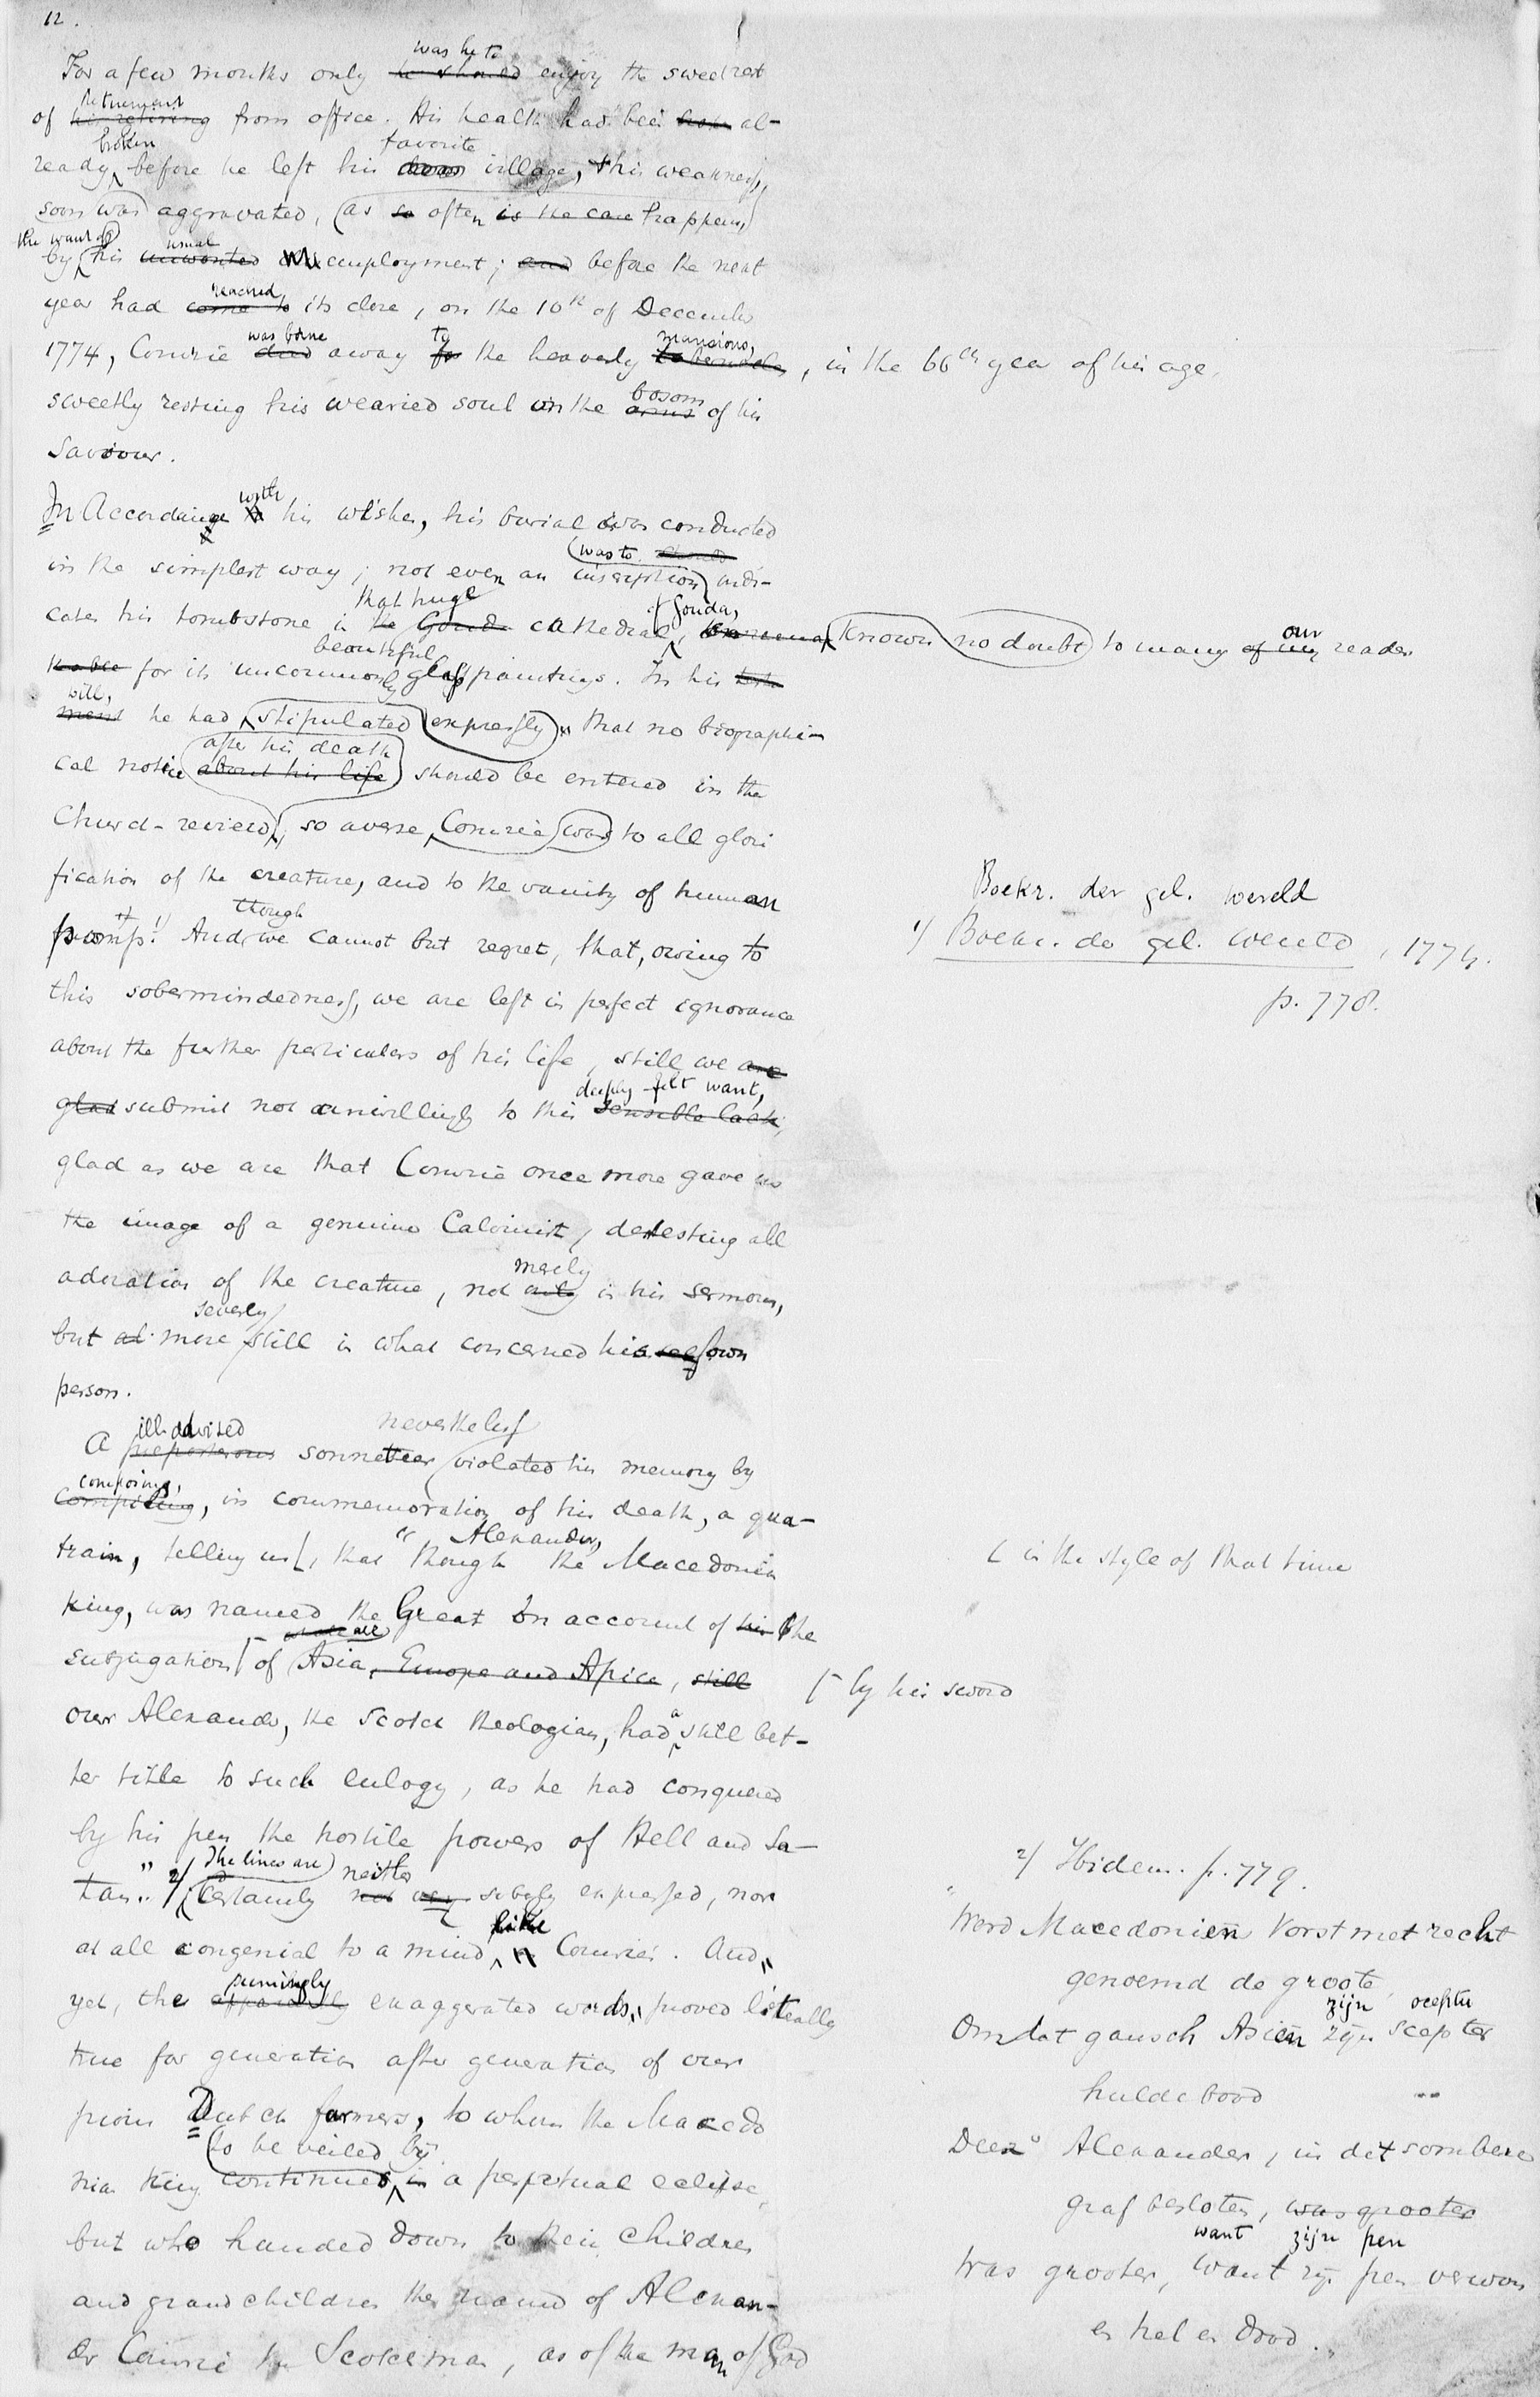 12.
was he to
For a few months only he should enjoy the sweetest
retirement
of his retiring from office. His health had been al-
broken favorite
ready before he left his village, this weakness,
soon was aggravated, (as so often is the case happens,)
the want of usual
by his unwonted employment; and before the next
reached
year had come to its close, on the 10th of December
was borne to mansions,
1774, Comrie died away for the heavenly tabernacles, in the 66th year of his age.
bosom
sweetly resting his wearied soul in the arms of his
Saviour.
with
In Accordance his wishes, his burial was conducted
was to should
in the simplest way; not even an inscription indi-
that huge of Gouda,
cates his tombstone in the Gouda cathedral, known no doubt to many of our readers
beautiful
for its uncommonly glass paintings. In his testa
will,
ment he had stipulated expressly that no biographi-
after his death
cal notice about his life should be entered in the
Church-review, so averse Comrie was to all glori
fication of the creature, and to the vanity of human
though
pomp! 1) And we cannot but regret, that, owing to
this sobermindedness, we are left in perfect ignorance
about the further particulars of his life, still we are
deeply felt want,
glad submit not unwillingly to this sensible lack,
glad as we are that Comrie once more gave us
the image of a genuine Calvinist, detesting all
merely
adoration of the creature, not only in his sermons,
severely
but more still in what concerned his self own
person.
ill-advised nevertheless
A preposterous sonneteer violated his memory by
composing,
compiling, in commemoration of his death, a qua-
" Alexander,
train, telling us, that though the Macedonian
king, was named the Great on account of his the
all
subjugation of Asia, Europe and Africa, still
a
our Alexander, the Scotch theologian, had still bet-
ter title to such eulogy, as he had conquered
by his pen the hostile powers of Hell and Sa-
The lines are neither
tan." 2) Certainly not very subtly expressed, nor
like
at all congenial to a mind, Comrie's. And,
seemingly
yet, the apparently exaggerated words, proved literally
true for generation after generation of our
pious Dutch farmers, to whom the Macedo
to be veiled by
nian king continued in a perpetual eclipse,
but who handed down to their children
and grand children the name of Alexan-
der Comrie the Scotchman, as of the man of God
Boekz. der gel. wereld
1) Boekz. der gel. wereld, 1774.
p. 778.
( in the style of that time
by his sword
2) Ibidem. p. 779.
"Werd Macedoniën Vorst met recht
genoemd de groote,
zijn scepter
Omdat gansch Asiën zijn scepter
hulde bood
Deez' Alexander, in dit sombere
graf besloten, was grooter
want zijn pen
Was grooter, want zijn pen verwon
en hel en dood.